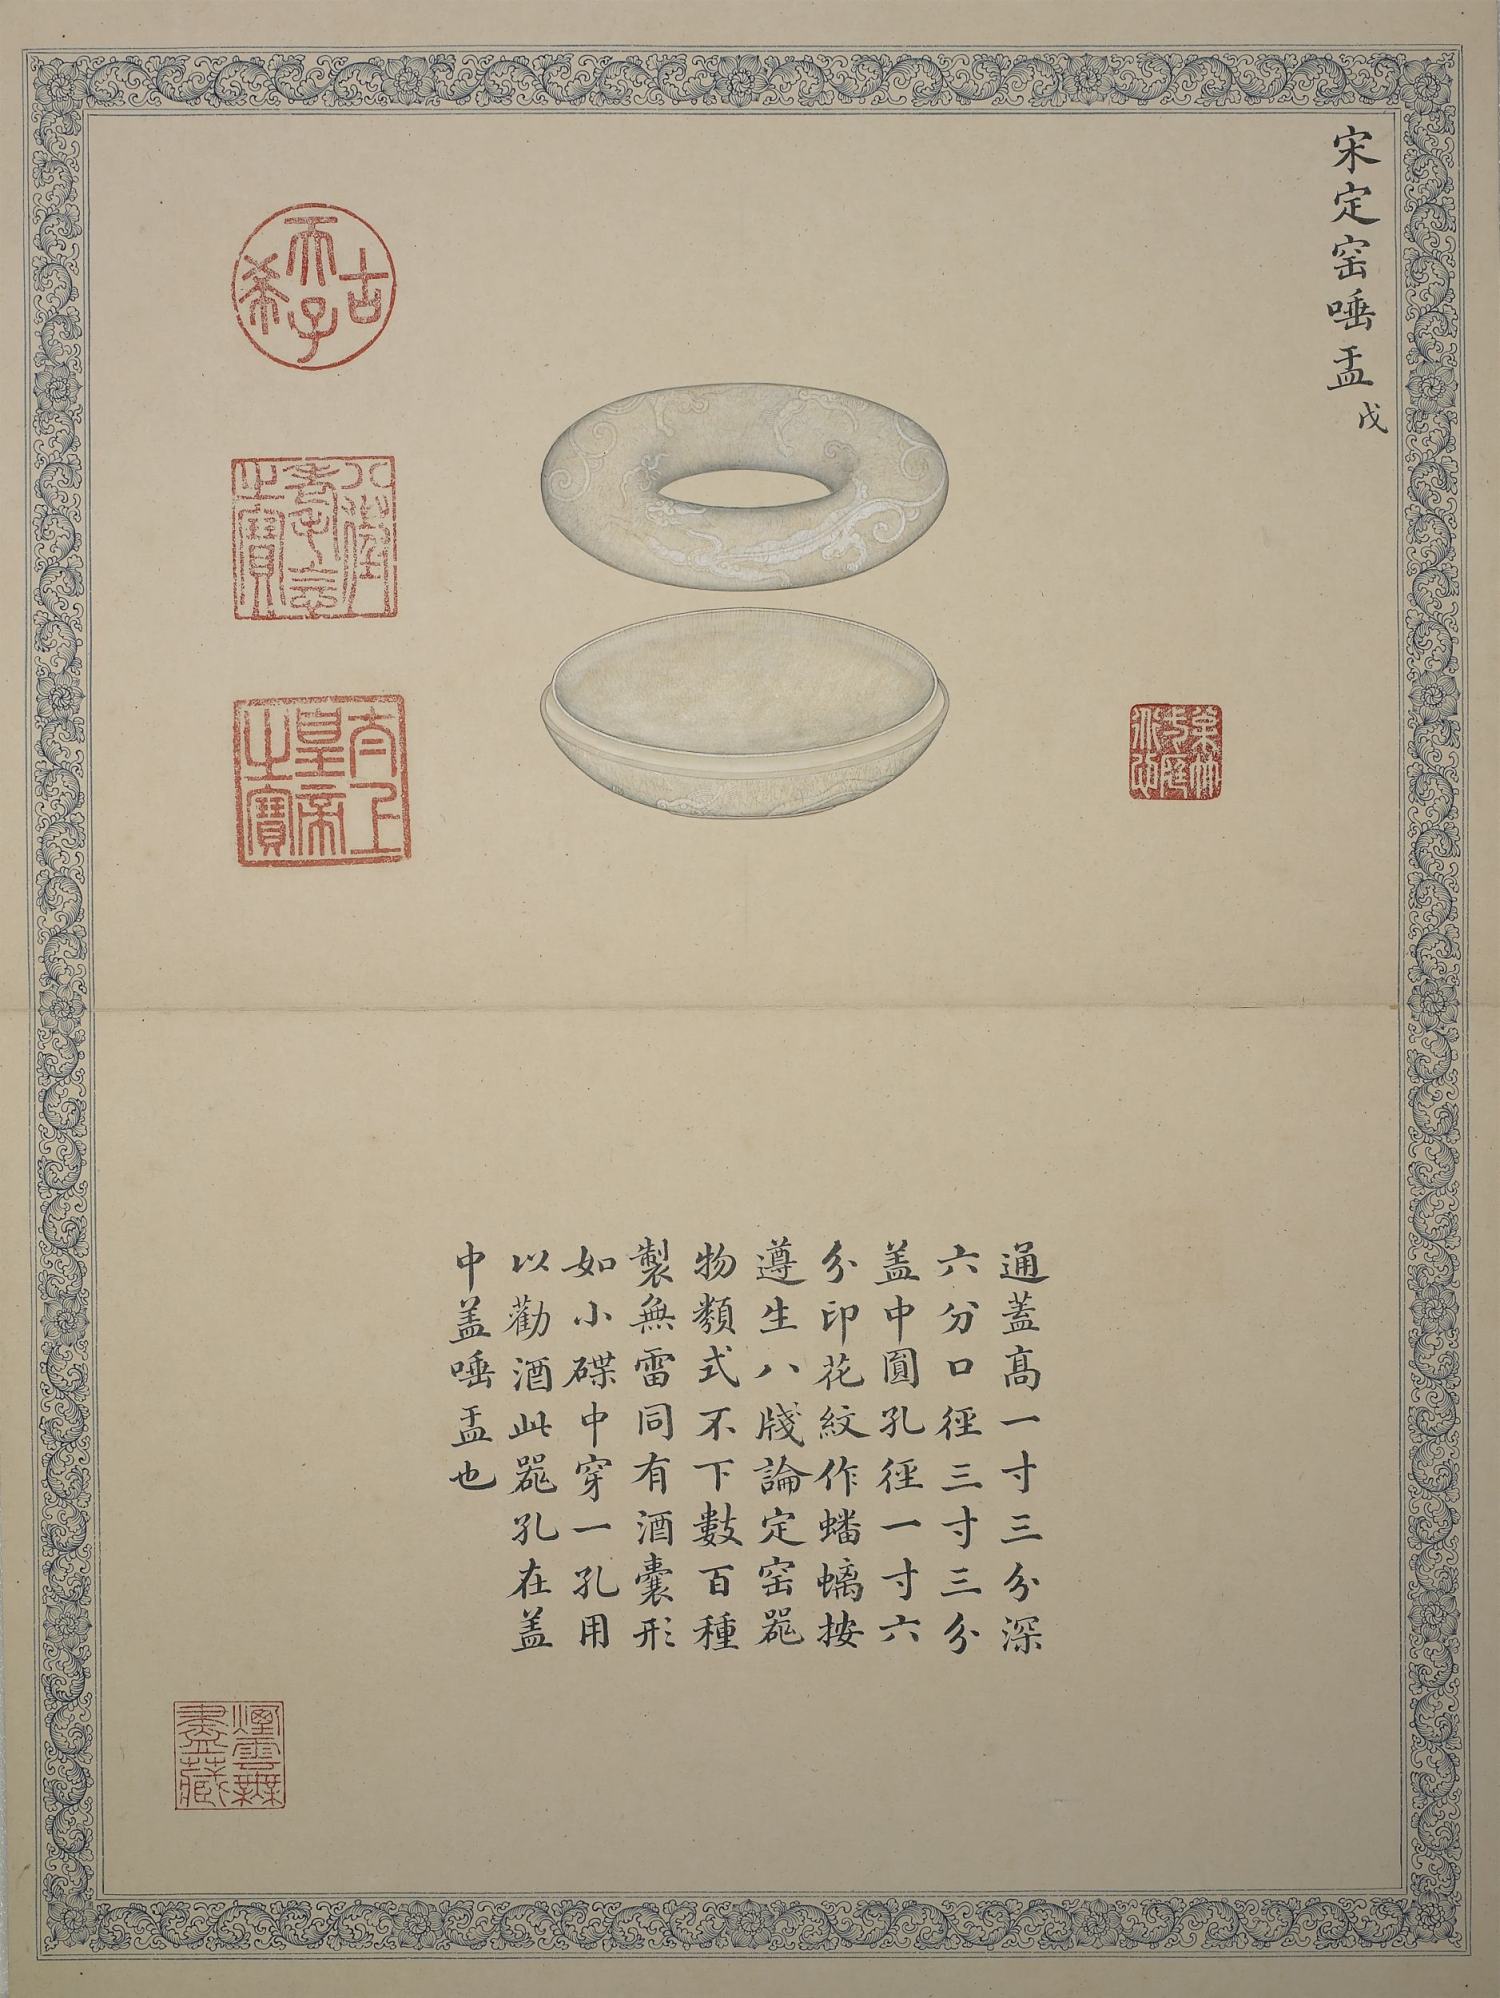 宋定窑唾盂 戊
古希天子
八徵耄念之寶
太上皇帝之寶
通蓋髙一寸三分深
六分口徑三寸三分
盖中圓孔徑一寸六
分印花紋作蟠螭按
遵生八牋論定窑器
物類式不下數百種
製無雷同有酒囊形
如小碟中穿一孔用
以勸酒此器孔在盖
中盖唾盂也
煙雲無盡藏